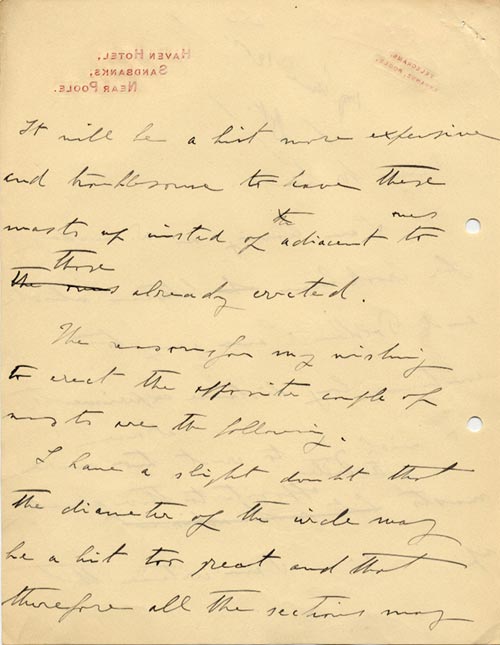 HAVEN HOTEL,
SANDBANKS,
NEAR POOLE.
TELEGRAMS,
It will be a bit more expensive
and troublesome to have these
masts up insted of the adiacent ones to
the ones those already erected.
The reasons for my wishing
to erect the opposite couple of
masts are the following.
I have a slight doubt that
the diameter of the circle may
be a bit too great and that
therefore all the sections may